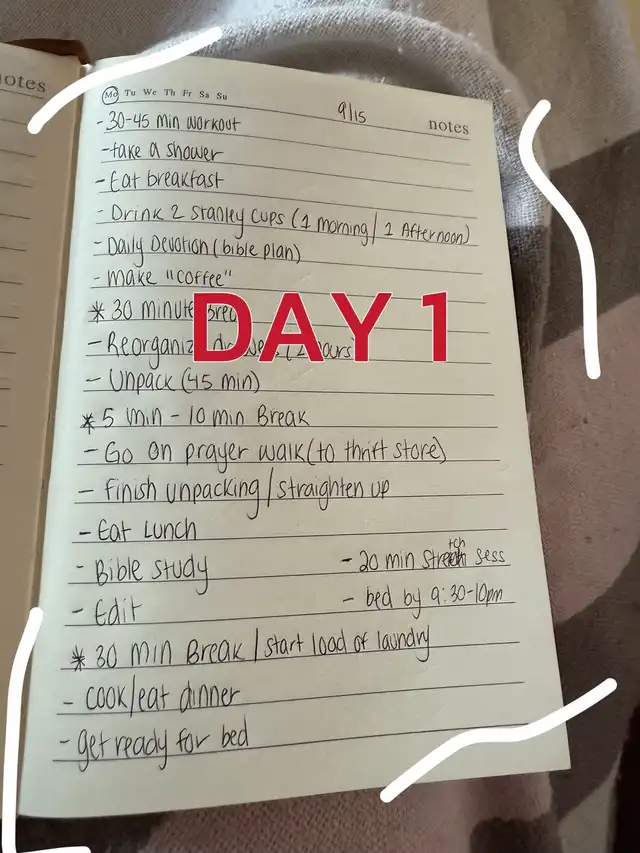 notes
Mo Tu We Th Fr Sa Su
9/15
notes
- 30-45 min workout
- take a shower
- Eat breakfast
- Drink 2 Stanley cups (1 morning / 1 Afternoon)
- Daily Devotion (bible plan)
- make "coffee"
* 30 minute
DAY 1
- Unpack (45 min)
* 5 min - 10 min Break
- Go on prayer walk (to thrift store)
- finish unpacking / straighten up
- Eat Lunch
- Bible study
- 20 min stretch sess
- Edit
- bed by 9:30-10pm
* 30 min Break / start load of laundry
- cook/eat dinner
- get ready for bed